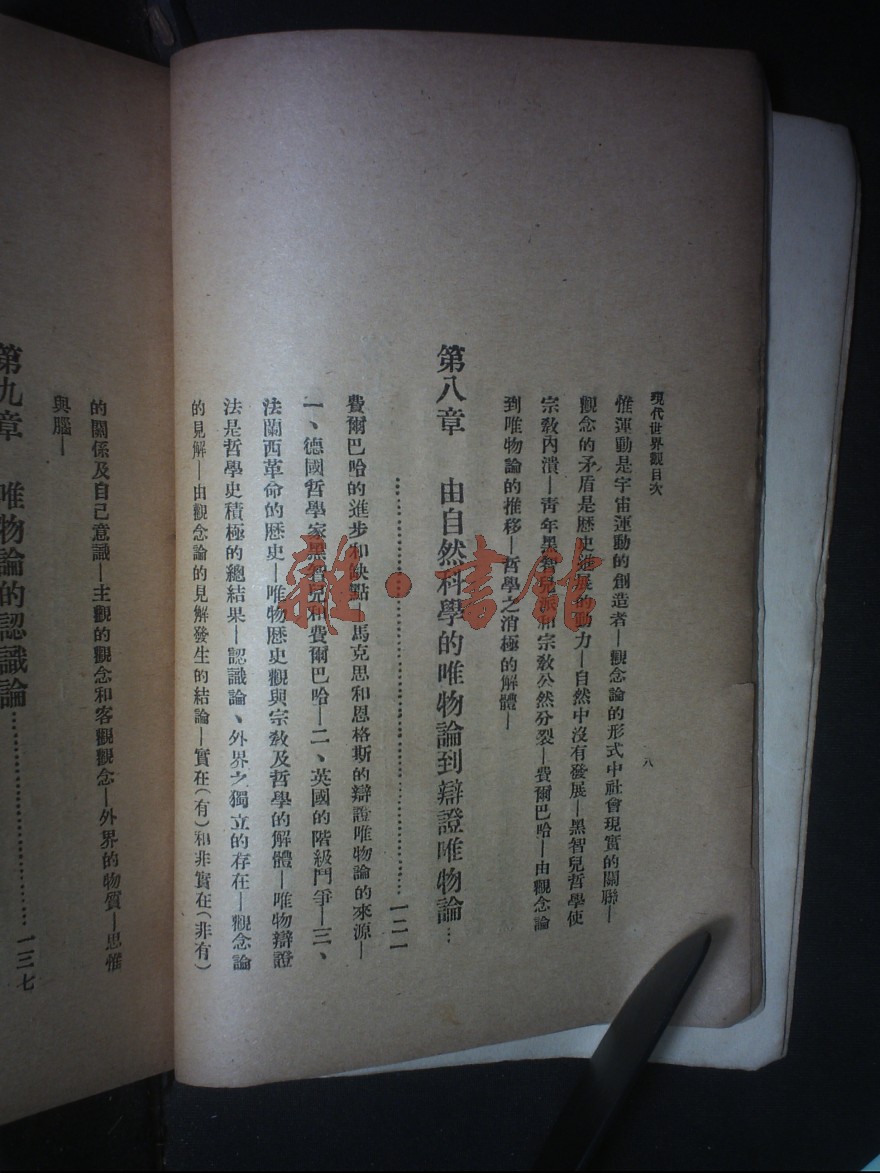 現代世界觀目次
八
惟運動是宇宙運動的創造者—觀念論的形式中社會現實的關聯—
觀念的矛盾是歷史進展的動力—自然中沒有發展—黑智兒哲學使
宗教內潰—青年黑智兒派和宗教公然分裂—費爾巴哈—由觀念論
到唯物論的推移—哲學之消極的解體—
第八章　由自然科學的唯物論到辯證唯物論…
……………………………………一二一
費爾巴哈的進步和缺點—馬克思和恩格斯的辯證唯物論的來源—
一、德國哲學家黑智兒和費爾巴哈—二、英國的階級鬥爭—三、
法蘭西革命的歷史—唯物歷史觀與宗教及哲學的解體—唯物辯證
法是哲學史積極的總結果—認識論、外界之獨立的存在—觀念論
的見解—由觀念論的見解發生的結論—實在（有）和非實在（非有）
的關係及自己意識—主觀的觀念和客觀觀念—外界的物質—思惟
與腦—
第九章　唯物論的認識論………………一三七
雜·書館